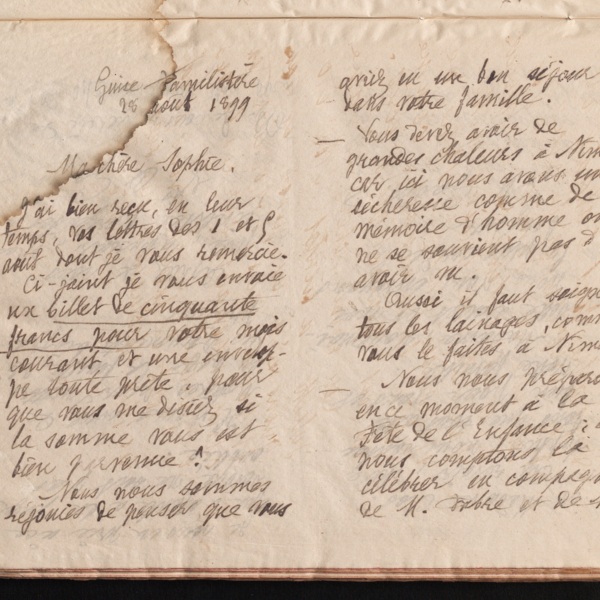 Guise Familistère
28 août 1899
Ma chère Sophie.
J'ai bien reçu, en leur
temps, vos lettres des 1 et 5
août dont je vous remercie.
Ci-joint je vous envoie
un billet de cinquante
francs pour votre mois
courant et une envelop-
pe toute prête, pour
que vous me disiez si
la somme vous est
bien parvenue !
Nous nous sommes
rejouies de penser que vous
aviez eu un bon séjour
dans votre famille.
— Vous devez avoir de
grandes chaleurs à Nim
car, ici nous avons un
sécheresse comme de
mémoire d'homme on
ne se souvient pas d
avoir vu.
Aussi il faut soign
tous les lainages, com
vous le faites à Nim
— Nous nous prépar
en ce moment à la
Fête de l'Enfance ;
nous comptons la
célébrer en compag
de M. Fabre et de